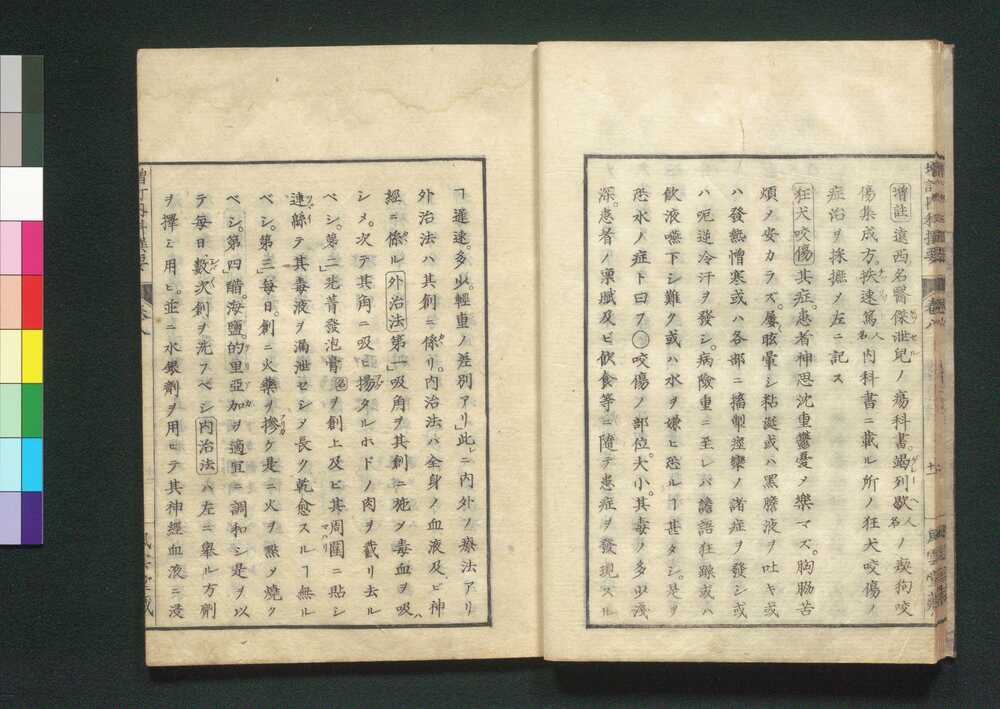 増註遠西名醫傑泄兒ノ瘍科書。竭列歇人名ノ瘈狗咬
傷集成方。扶速篤人名内科書ニ載ル所ノ狂犬咬傷ノ
症治ヲ採摭メ左ニ記ス
狂犬咬傷其症。患者神思沈重鬱憂メ樂マズ。胸脇苦
煩ノ安カラズ。屡眩暈シ粘涎或ハ黒膽液ヲ吐キ或
ハ發熱憎寒或ハ各部ニ搐掣痙攣ノ諸症ヲ發シ或
ハ呃逆冷汗ヲ發シ。病險重ニ至レバ譫語狂躁或ハ
飲液嚥下シ難ク或ハ水ヲ嫌ヒ恐ルヿ甚タシ。是ヲ
恐水ノ症ト曰フ○咬傷ノ部位。大小。其毒ノ多少淺
深。患者ノ稟賦及ビ飲食等ニ隨テ患症ヲ發現スル
ヿ遲速。多少。輕重ノ差別アリ」此レニ内外ノ療法アリ
外治法ハ其創ニ係リ。内治法ハ全身ノ血液及ビ神
經ニ係ル外治法第一吸角ヲ其創ニ施メ毒血ヲ吸ハ
シメ。次テ其角ニ吸ヒ揚タルホドノ肉ヲ截リ去ル
ベシ。第二芫菁發泡膏ヲ創上及ビ其周圍ニ貼シ
連緜テ其毒液ヲ漏泄セシメ長ク乾愈スルヿ無ル
ベシ。第三毎日。創ニ火藥ヲ摻ケ是ニ火ヲ㸃メ燒ク
ベシ。第四醋。海鹽。的里亞加ヲ適宜ニ調和シ是ヲ以
テ毎日。數次創ヲ洗フベシ内治法ハ左ニ擧ル方劑
ヲ擇ミ用ヒ。並ニ水銀劑ヲ用ヒテ其神經血液ニ浸